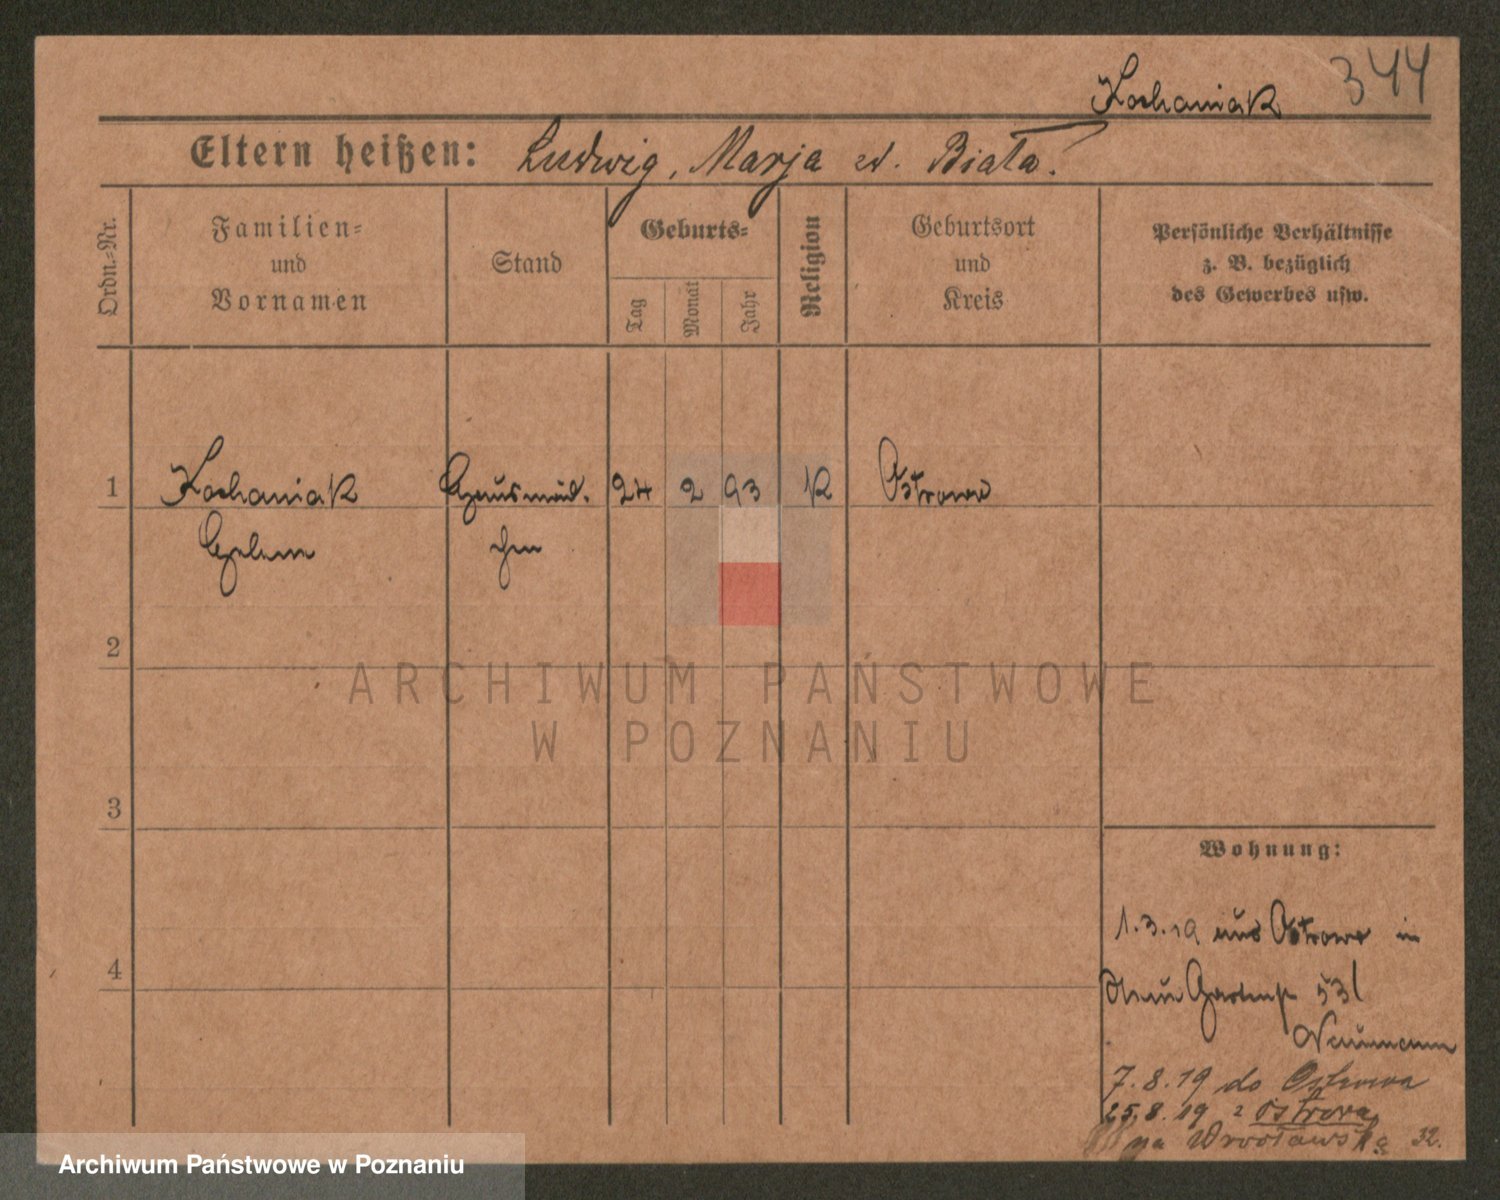 344
Kochaniak
Eltern heißen: Ludwig, Marja zd. Biała.
Ordn.-Nr.
Familien-
und
Vornamen
Stand
Geburts-
Tag
Monat
Jahr
Religion
Geburtsort
und
Kreis
Persönliche Verhältnisse
z. B. bezüglich
des Gewerbes usw.
1 Kochaniak Hausmäd. 24 2 93 K Ostrowo
Helene chen
2
ARCHIWUM PAŃSTWOWE
W POZNANIU
3
Wohnung:
1.3.19 aus Ostrowo in
4
53 I
Naumann
7.8.19 do Ostrowa
25.8.19 z Ostrowa
na Wrocławską 32.
Archiwum Państwowe w Poznaniu